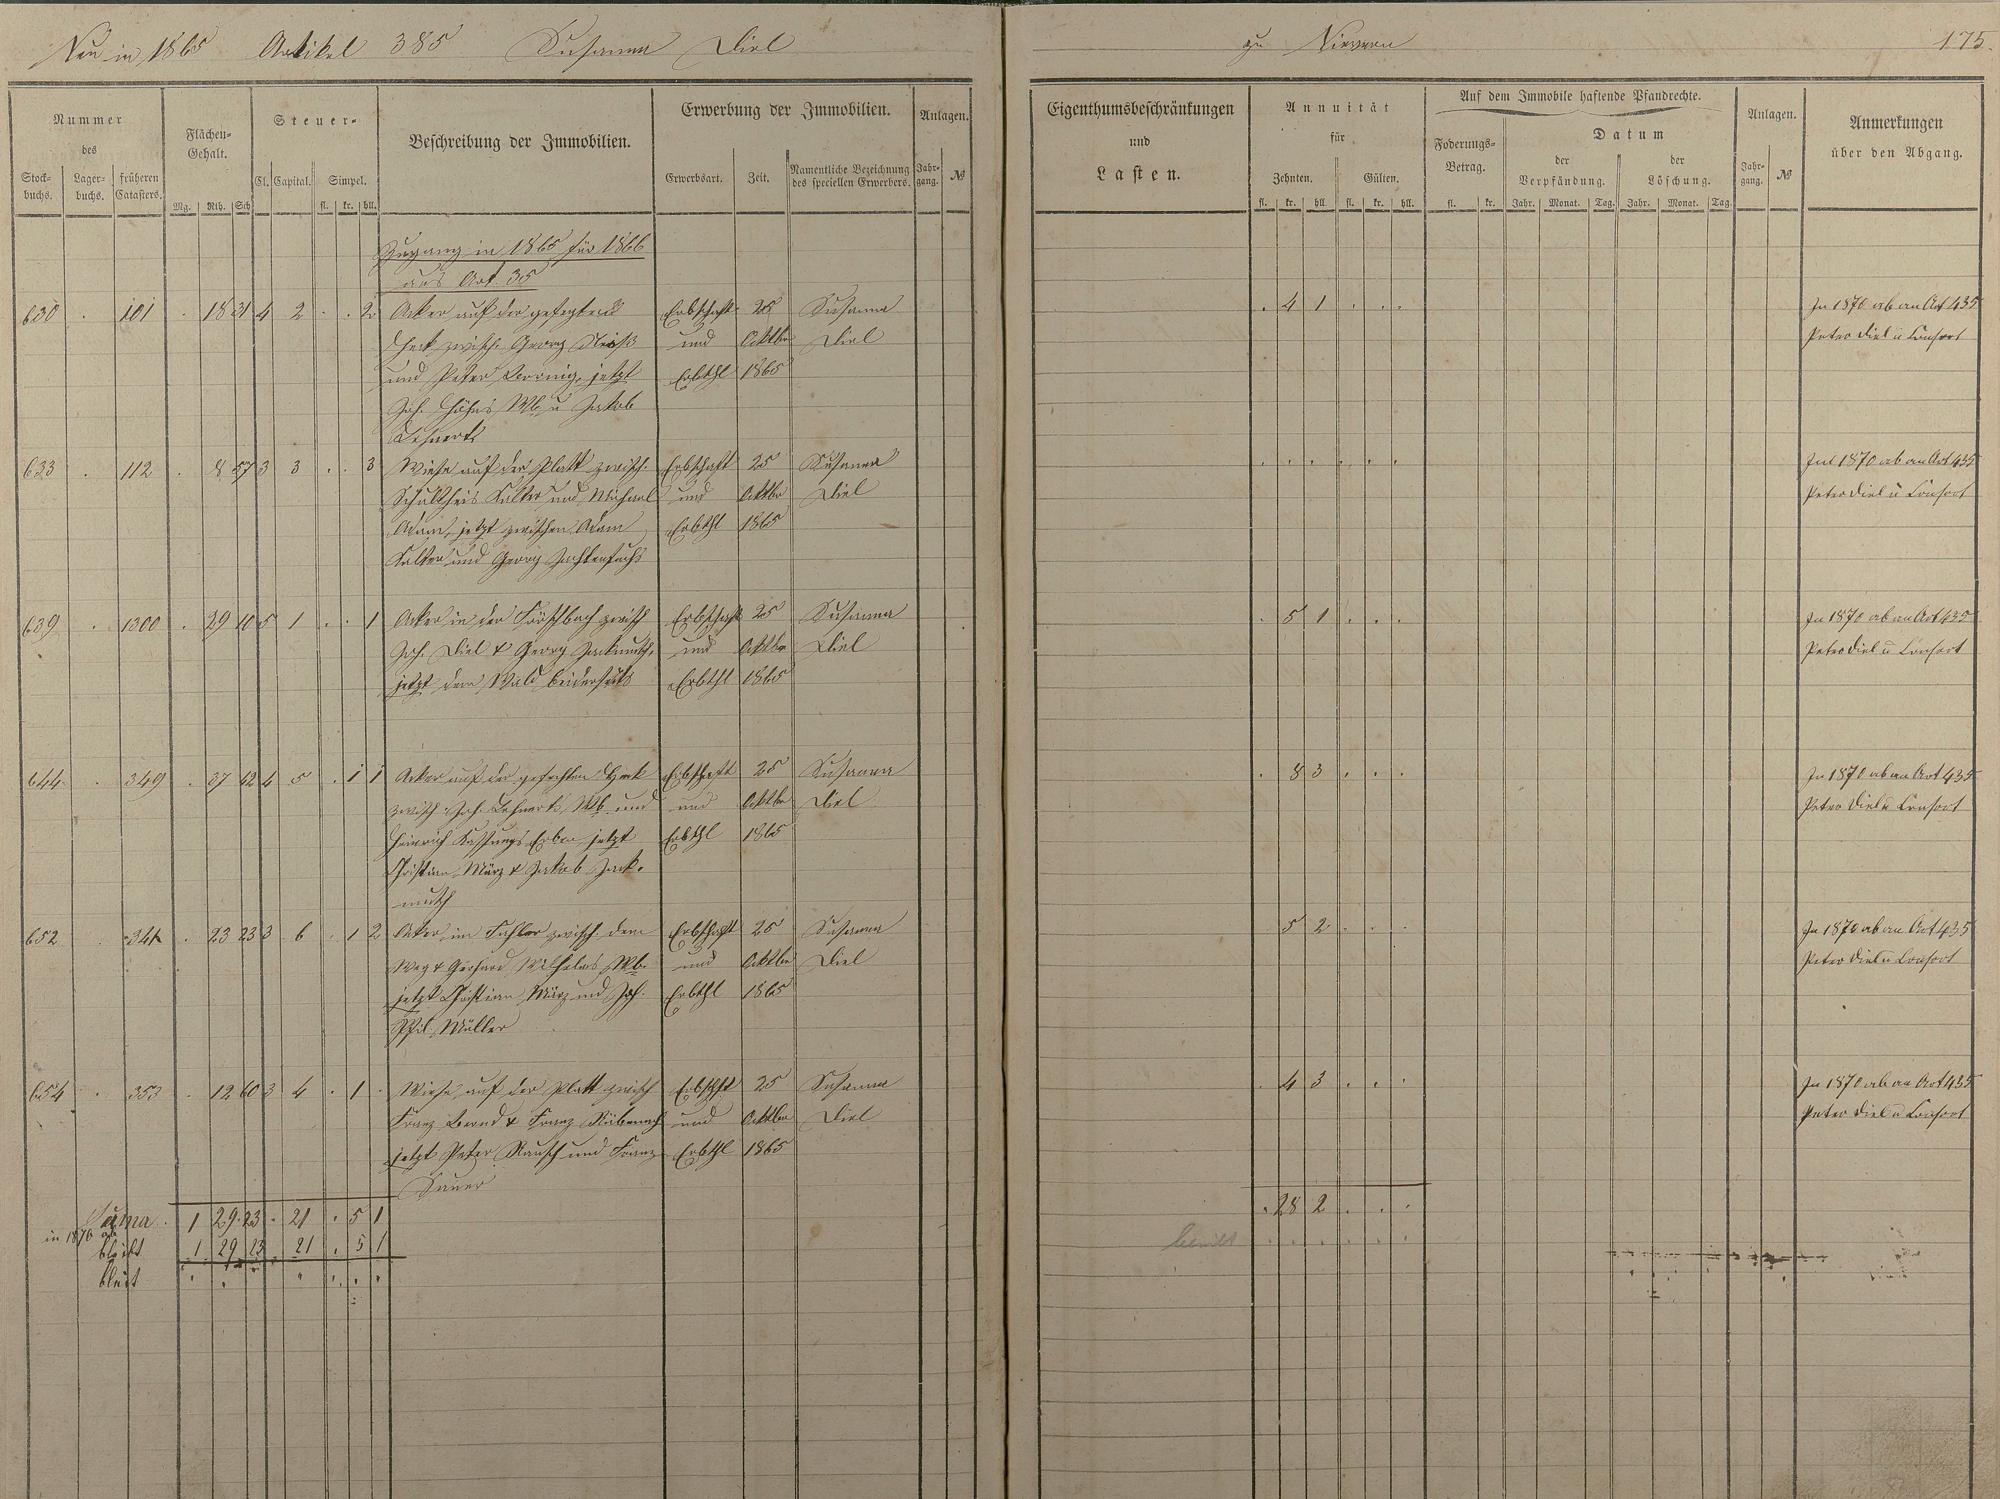 Neu in 1865 Artikel 385 Susanna Diel
zu Nievern 175.
Nummer
des
Stock-
buchs.
Lager-
buchs.
früheren
Catasters.
Flächen-
Gehalt.
Mg. Rth. Sch
Steuer-
Cl. Capital. Simpel.
fl. kr. hll.
Beschreibung der Immobilien.
Erwerbung der Immobilien.
Erwerbsart. Zeit. Namentliche Bezeichnung
des speciellen Erwerbers.
Anlagen.
Jahr-
gang. №
Eigenthumsbeschränkungen
und
Lasten.
Annuität
für
Zehnten. Gülten.
fl. kr. hll. fl. kr. hll.
Auf dem Immobile haftende Pfandrechte.
Foderungs-
Betrag.
fl. kr.
Datum
der
Verpfändung.
der
Löschung.
Jahr. Monat. Tag. Jahr. Monat. Tag
Anlagen.
Jahr-
gang. №
Anmerkungen
über den Abgang.
Zugang in 1865 für 1866
aus Art 35
630 . 101 . 18 31 4 2 . . 2 Acker auf der Erbschaft 25 Susanna . 4 1 . . . In 1870 ab an Art 435
Heck zwisch. Georg und Oktbr Diel Peter Diel u Consort
und Peter jetzt Erbthl 1865
Joh. Wb u Jakob
Lehnerts
633 . 112 . 8 57 3 3 . . 3 Wiese auf der Platt zwisch. Erbschaft 25 Susanna . . . . . . In 1870 ab an Art 435
Schultheis Kalter und Michael und Oktbr Diel Peter Diel u Consort
Adam, jetzt zwischen Adam Erbthl 1865
Kalter und Georg
639 . 1300 . 29 10 5 1 . . 1 Acker in der zwisch Erbschaft 25 Susanna . 5 1 . . . In 1870 ab an Art 435
Joh. Diel & Georg Jackmuth, und Oktbr Diel Peter Diel u Consort
jetzt dem Wald beiderseits Erbthl 1865
644 . 349 . 37 42 4 5 . 1 1 Acker auf der Heck Erbschaft 25 Susanna . 8 3 . . . In 1870 ab an Art 435
zwisch Joh. Lehnerts Wb und und Oktbr Diel Peter Diel u Consort
Heinrich Erben jetzt Erbthl 1865
Christian März & Jakob Jack-
muth
652 . . 23 23 3 6 . 1 2 Acker im zwisch. dem Erbschaft 25 Susanna 5 2 . . . In 1870 ab an Art 435
Weg & Gerhard Wilhelms Wb. und Oktbr Diel Peter Diel u Consort
jetzt Christian März und Joh. Erbthl 1865
Phil. Müller
654 . 353 . 12 60 3 4 . 1 . Wiese auf der Platt zwisch Erbschft 25 Susanna . 4 3 . . . In 1870 ab an Art 435
Franz Bernd & Franz Rübenach und Oktbr Diel Peter Diel u Consort
jetzt Peter Rausch und Franz Erbthl 1865
Sauer
Suma. 1 29 23 . 21 . 5 1 . 28 2 . . .
in 1870 ab 1 29 23 . 21 . 5 1
bleibt